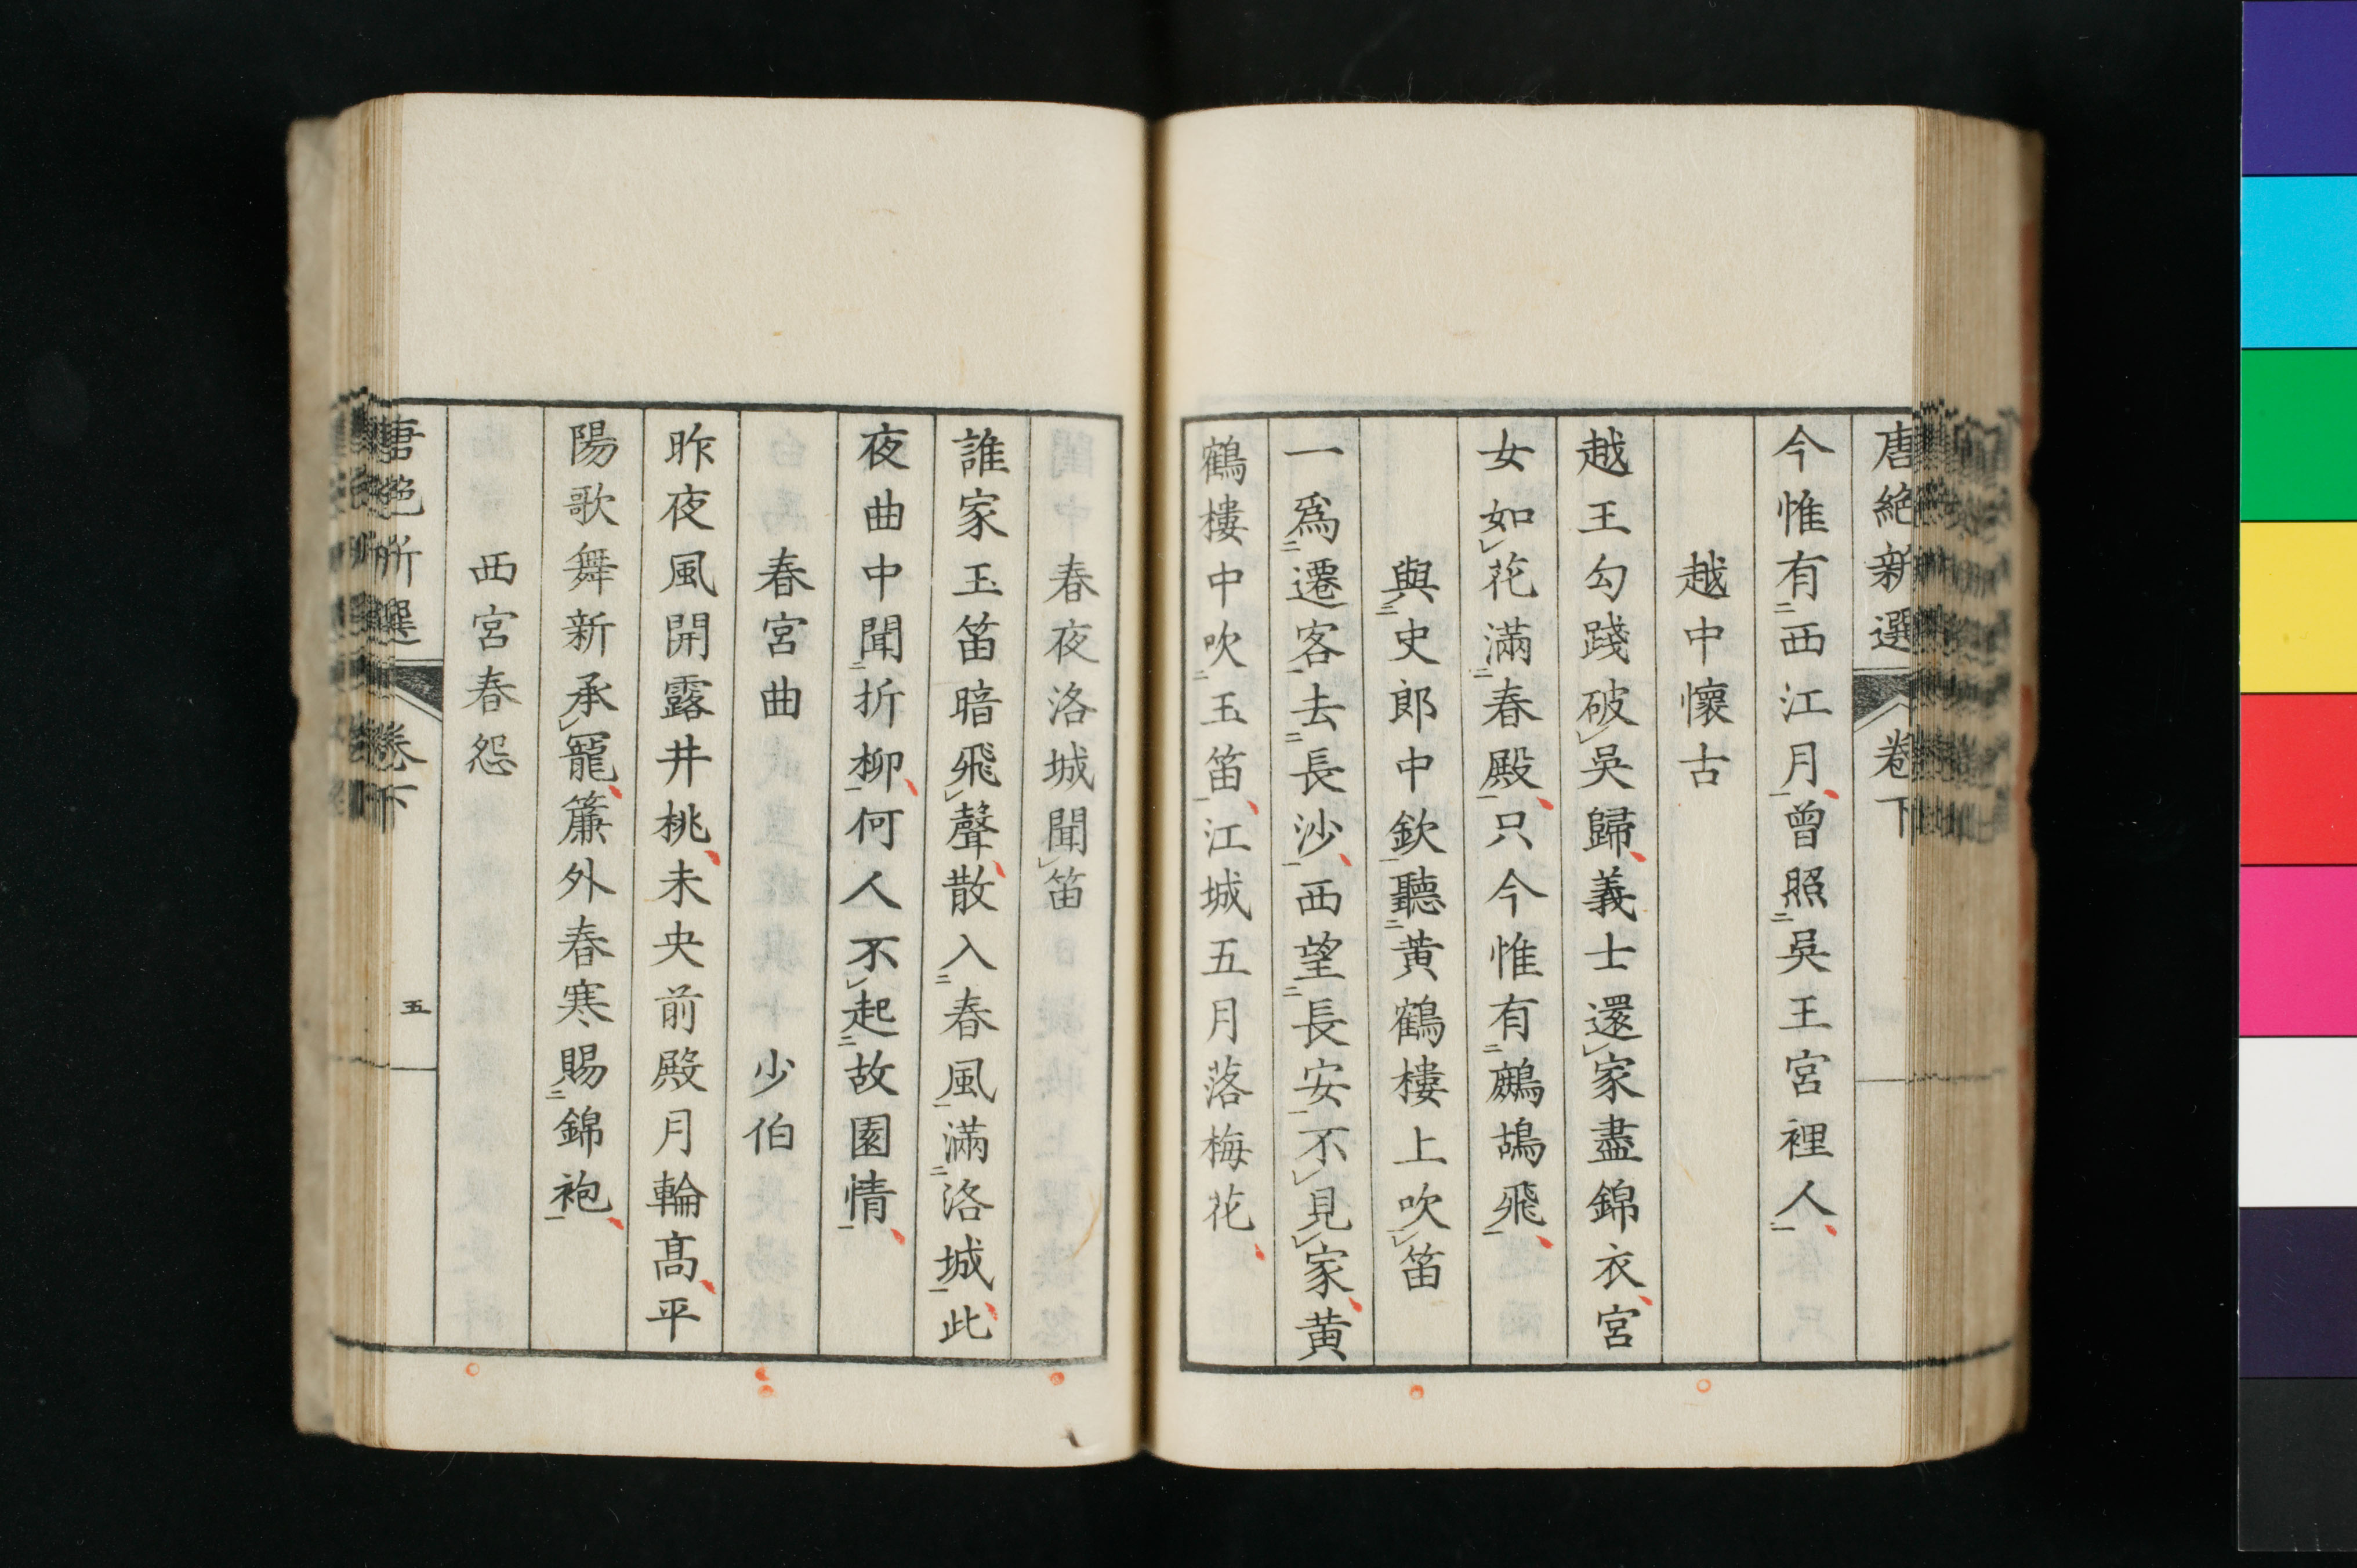 唐絶新選
卷下
今惟有二西江月一曾照二吳王宮裡人一
越中懷古
越王勾踐破レ吳歸義士還レ家盡錦衣宮
女如レ花滿二春殿一只今惟有二鷓鴣飛一
與二史郎中欽一聽二黃鶴樓上吹レ笛
一爲二遷客一去二長沙一西望二長安一不レ見レ家黃
鶴樓中吹二玉笛一江城五月落梅花
春夜洛城聞レ笛
誰家玉笛暗飛レ聲散入二春風一滿二洛城一此
夜曲中聞二折柳一何人不レ起二故園情一
春宮曲 少伯
昨夜風開露井桃未央前殿月輪高平
陽歌舞新承レ寵簾外春寒賜二錦袍一
西宮春怨
唐絶新選
卷下
五